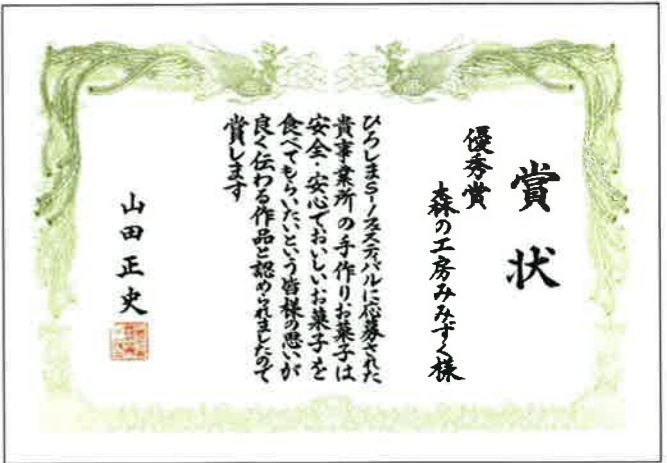 賞状
優秀賞
森の工房みみずく様
ひろしまS-1フェスティバルに応募された
貴事業所の手作りお菓子は
安全・安心でおいしいお菓子を
食べてもらいたいという皆様の思いが
良く伝わる作品と認められましたので
賞します
山田正史